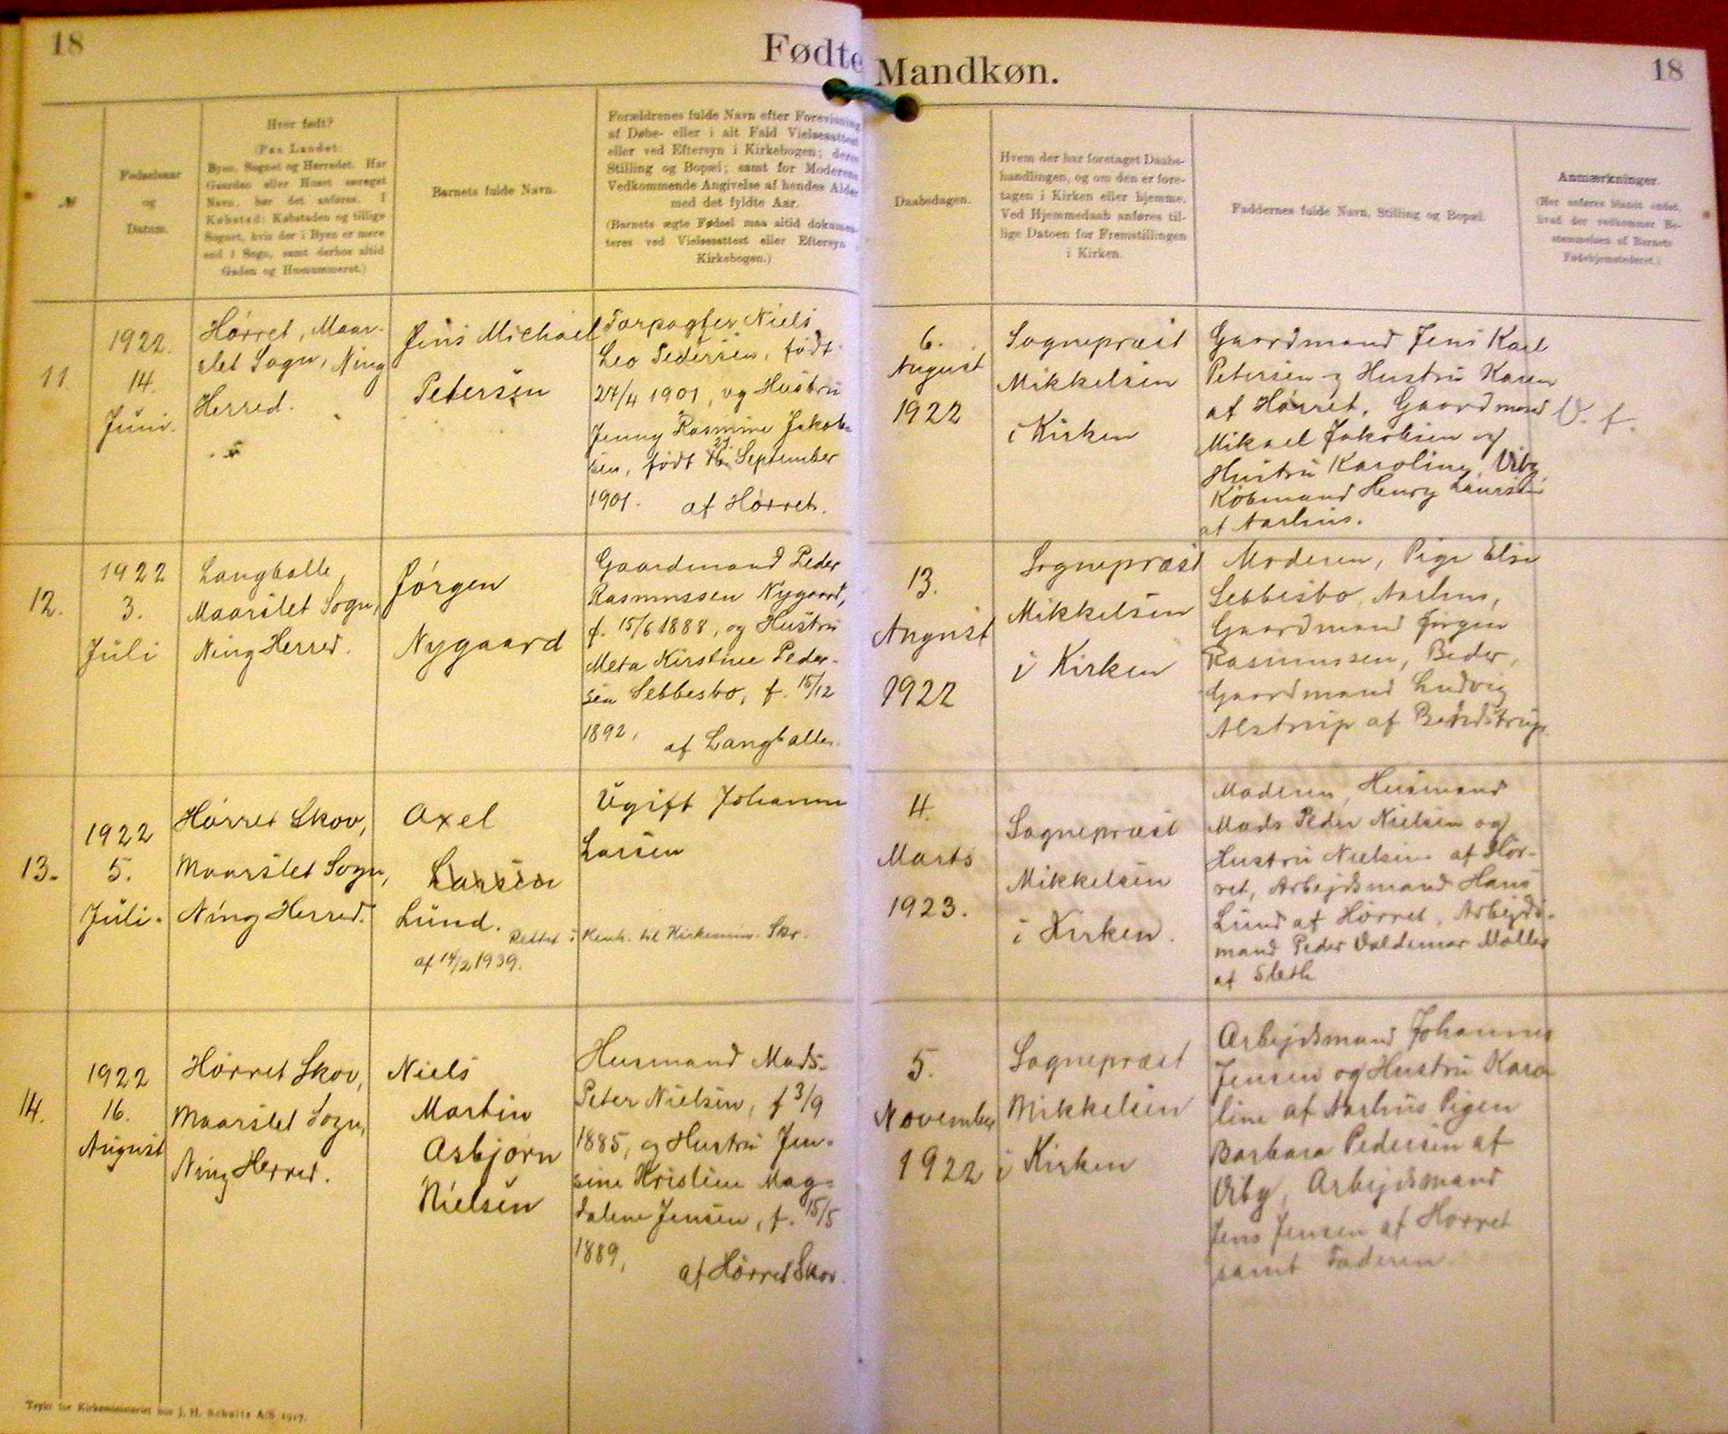 18
Fødte
№
Fødselsaar
og
Datum.
Hvor født?
(Paa Landet:
Byen, Sognet og Herredet. Har
Gaarden eller Huset særeget
Navn, bør det anføres. I
Købstad: Købstaden og tillige
Sognet, hvis der i Byen er mere
end 1 Sogn, samt derhos altid
Gaden og Husnummeret.)
Barnets fulde Navn.
Forældrenes fulde Navn efter Forevisning
af Døbe- eller i alt Fald Vielsesattest
eller ved Eftersyn i Kirkebogen; deres
Stilling og Bopæl; samt for Moderens
Vedkommende Angivelse af hendes Alder
med det fyldte Aar.
(Barnets ægte Fødsel maa altid dokumen-
teres ved Vielsesattest eller Eftersyn i
Kirkebogen.)
11.
1922.
14.
Juni.
Hørret, Maar-
slet Sogn, Ning
Herred.
Jens Michael
Petersen
Niels
Leo Pedersen, født
24/4 1901, og Hustru
Jenny Rasmine Jakob-
sen, født 21. September
1901. af Hørret.
12.
1922
3.
Juli
Langballe
Maarslet Sogn,
Ning Herred.
Jørgen
Nygaard
Gaardmand Peder
Rasmussen Nygaard,
f. 15/6 1888, og Hustru
Meta Kirstine Peder-
sen Sebbesbo, f. 15/12
1892, af Langballe.
13.
1922
5.
Juli.
Hørret Skov,
Maarslet Sogn,
Ning Herred.
Axel
Larsen
Lund.
Rettet i Henh. til Kirkemin. Skr.
af 14/2 1939.
Ugift Johanne
Larsen
14.
1922
16.
August
Hørret Skov,
Maarslet Sogn,
Ning Herred.
Niels
Martin
Asbjørn
Nielsen
Husmand Mads
Peter Nielsen, f 3/9
1885, og Hustru Jen-
sine Kristine Mag-
dalene Jensen, f. 15/5
1889,
af Hørret Skov.
Trykt for Kirkeministeriet hos J. H. Schultz A/S 1917.
Mandkøn.
18
Daabsdagen.
Hvem der har foretaget Daabs-
handlingen, og om den er fore-
tagen i Kirken eller hjemme.
Ved Hjemmedaab anføres til-
lige Datoen for Fremstillingen
i Kirken.
Faddernes fulde Navn, Stilling og Bopæl.
Anmærkninger.
(Her anføres blandt andet,
hvad der vedkommer Be-
stemmelsen af Barnets
Fødehjemstederet.)
6.
August
1922
Sognepræst
Mikkelsen
i Kirken
Gaardmand Jens Karl
Petersen og Hustru Karen
af Hørret, Gaardmand
Mikael Jakobsen og
Hustru Karoline, Viby
Købmand Henry Laursen
af Aarhus.
V. f.
13.
August
1922
Sognepræst
Mikkelsen
i Kirken
Moderen, Pige Else
Sebbesbo, Aarhus,
Gaardmand Jørgen
Rasmussen, Beder,
Gaardmand Ludvig
Alstrup af Battrup
4.
Marts
1923.
Sognepræst
Mikkelsen
i Kirken.
Moderen, Husmand
Mads Peder Nielsen og
Hustru Nielsine af Hør-
ret, Arbejdsmand Hans
Lund af Hørret, Arbejds-
mand Peder Valdemar Møller
af Sleth
5.
November
1922
Sognepræst
Mikkelsen
i Kirken
Arbejdsmand Johannes
Jensen og Hustru Karo-
line af Aarhus Pigen
Barbara Pedersen af
Viby, Arbejdsmand
Jens Jensen af Hørret
samt Faderen